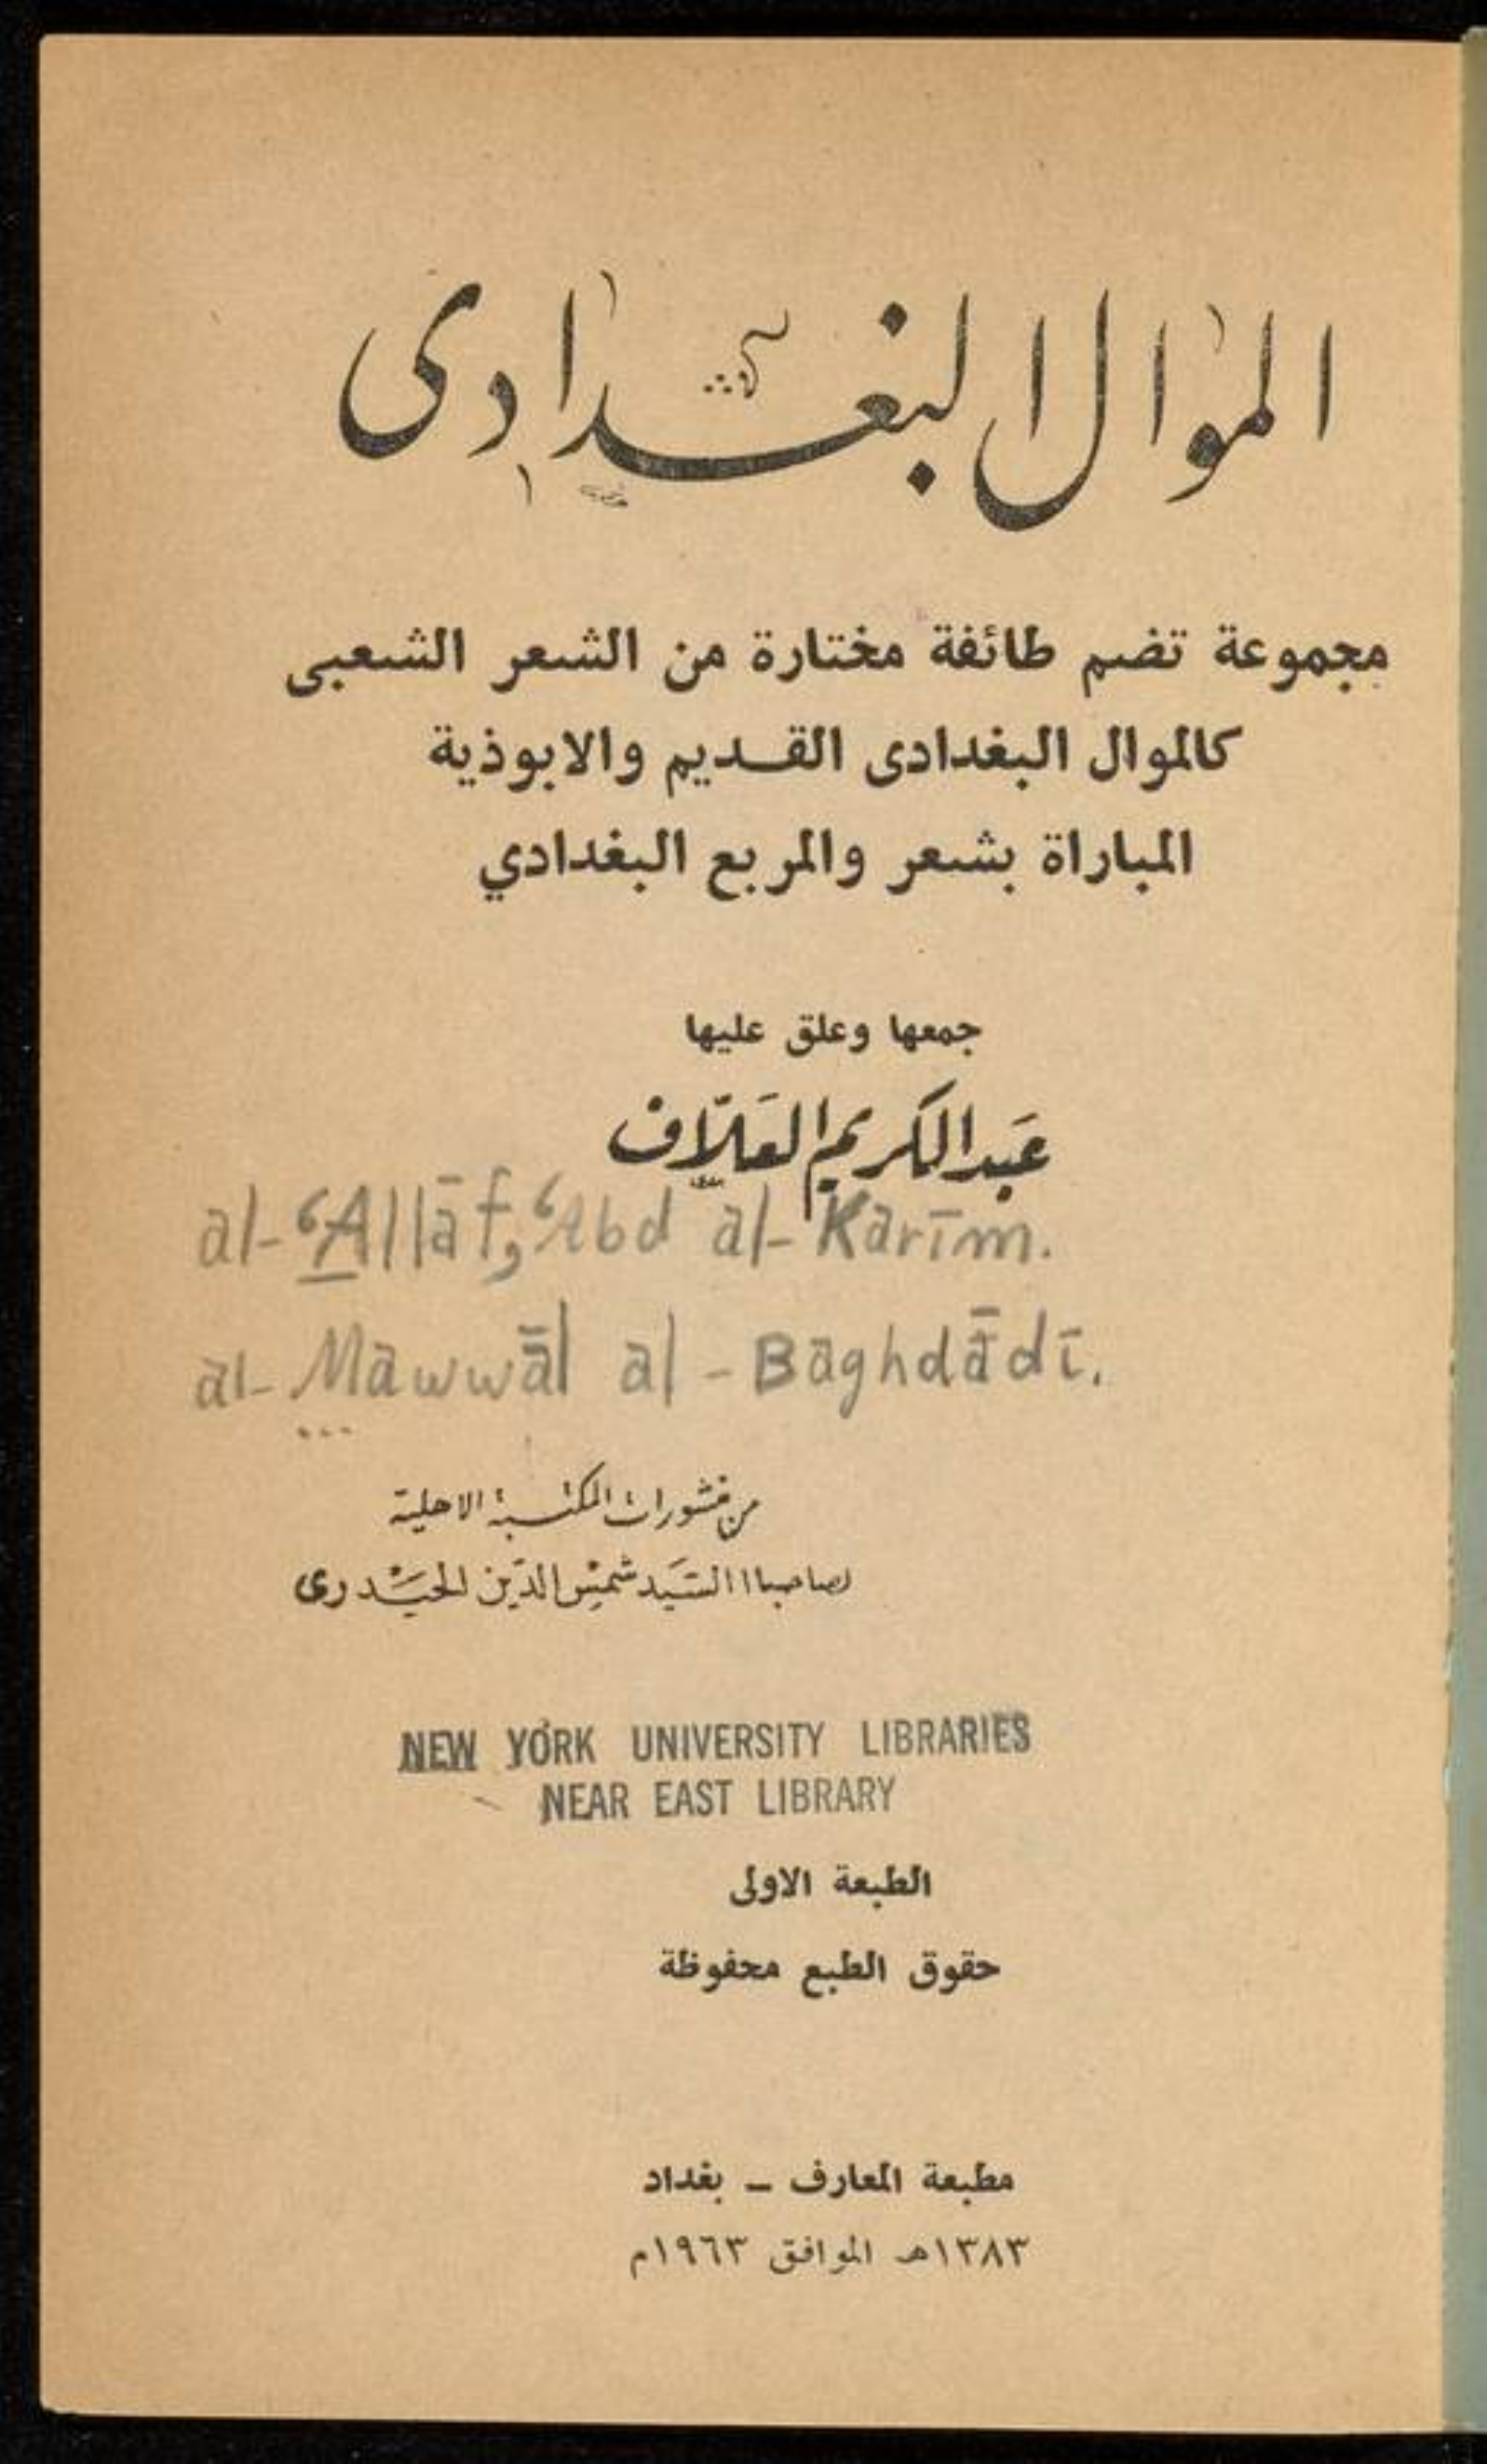 الموال البغدادى
مجموعة تضم طائفة مختارة من الشعر الشعبى
كالموال البغدادى القديم والابوذية
المباراة بشعر والمربع البغدادي
جمعها وعلق عليها
عبد الكريم العلاف
al-ʿAllāf, ʿAbd al-Karīm.
al-Mawwāl al-Baghdādī.
من منشورات المكتبة الاهلية
لصاحبها السيد شمس الدين الحيدرى
NEW YORK UNIVERSITY LIBRARIES
NEAR EAST LIBRARY
الطبعة الاولى
حقوق الطبع محفوظة
مطبعة المعارف ــ بغداد
١٣٨٣هـ الموافق ١٩٦٣م